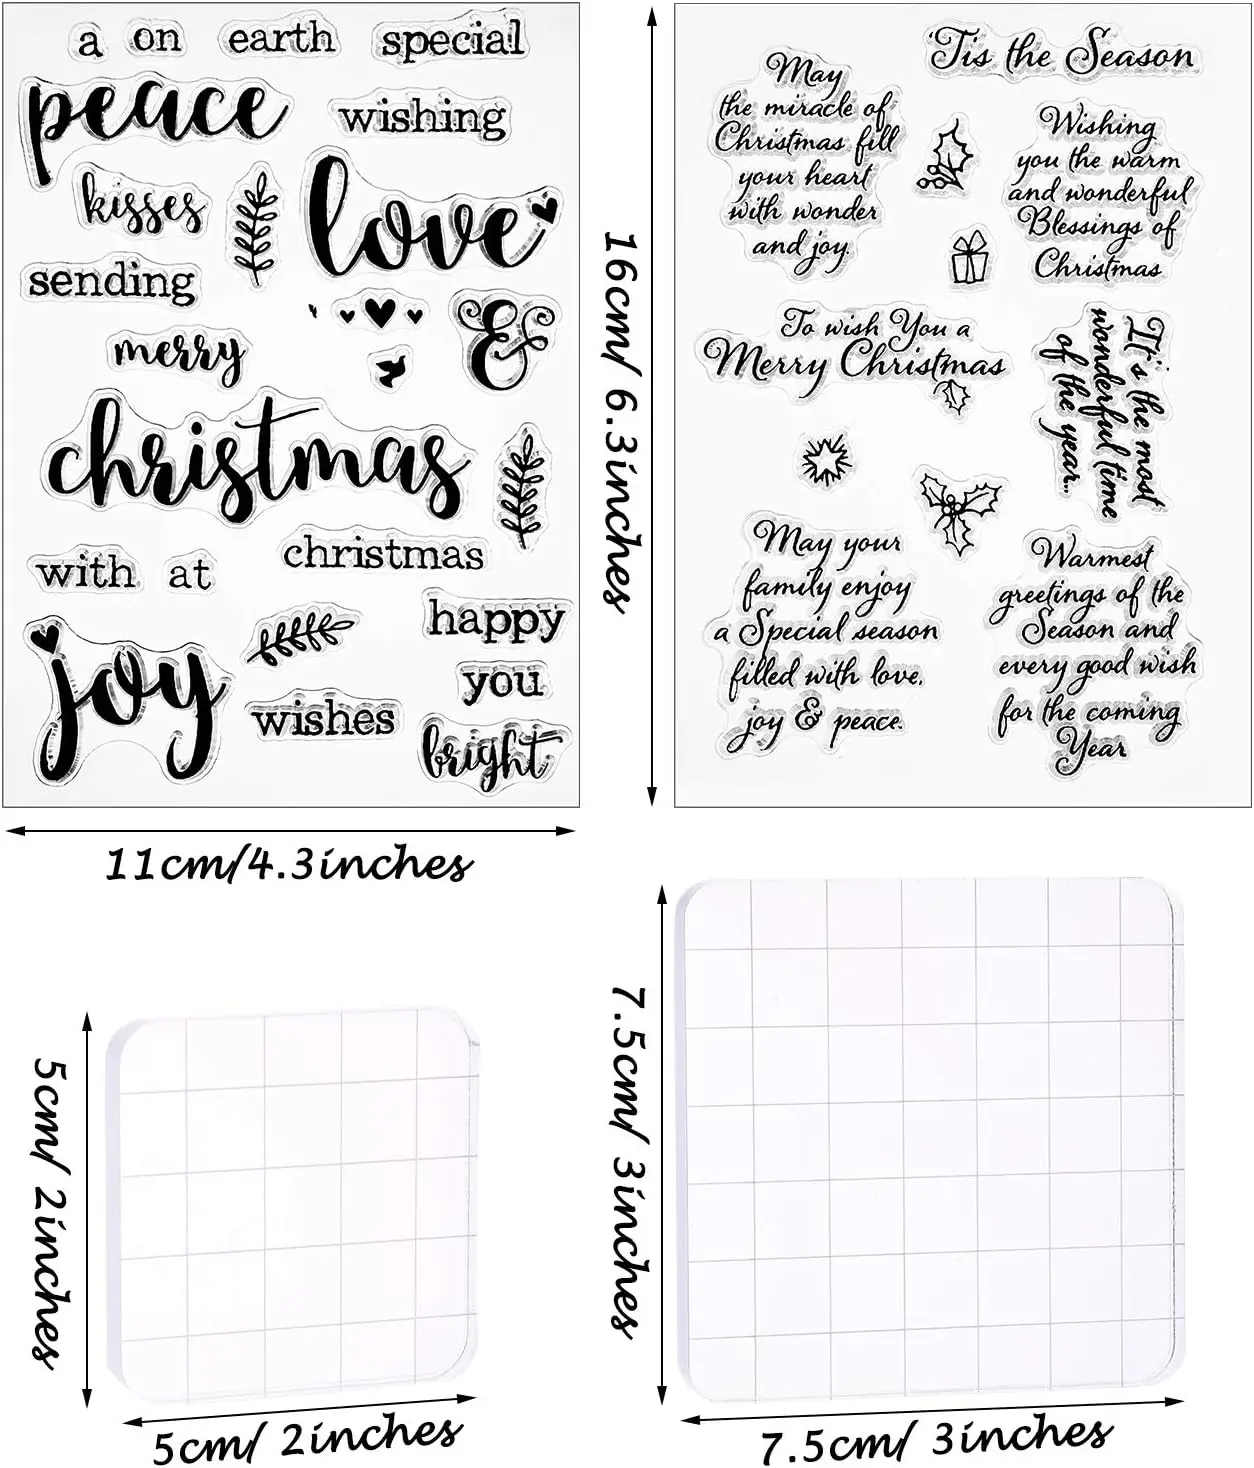 a on earth special
peace
wishing
kisses
love
sending
&
merry
christmas
christmas
with at
happy
joy
you
wishes
bright
'Tis the Season
May
the miracle of
Christmas fill
your heart
with wonder
and joy.
Wishing
you the warm
and wonderful
Blessings of
Christmas
To wish You a
Merry Christmas
It's the most
wonderful time
of the year...
May your
family enjoy
a Special season
filled with love,
joy & peace.
Warmest
greetings of the
Season and
every good wish
for the coming
Year
16cm/ 6.3inches
11cm/4.3inches
5cm/ 2inches
5cm/ 2inches
7.5cm/ 3inches
7.5cm/ 3inches